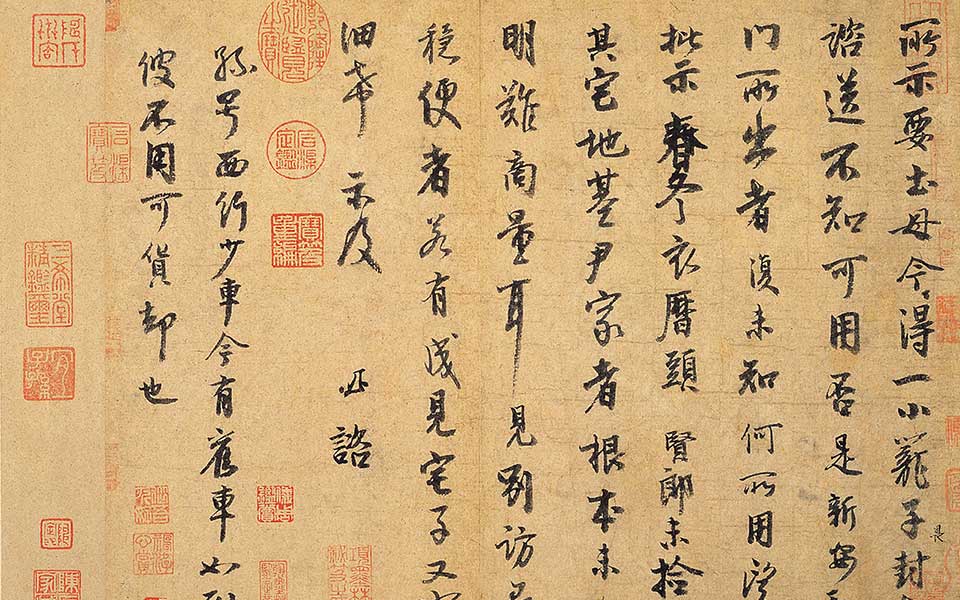 所示要土母今得一小籠子封
諮送不知可用否是新安
門所出者復未知何所用望
批示春冬衣曆頭賢郎未
其宅地基尹家者根本未
明難商量耳見別訪
穩便者若有成見宅子又
細希示及 諮
孫号西行少車今有舊車如
彼不用可貨却也